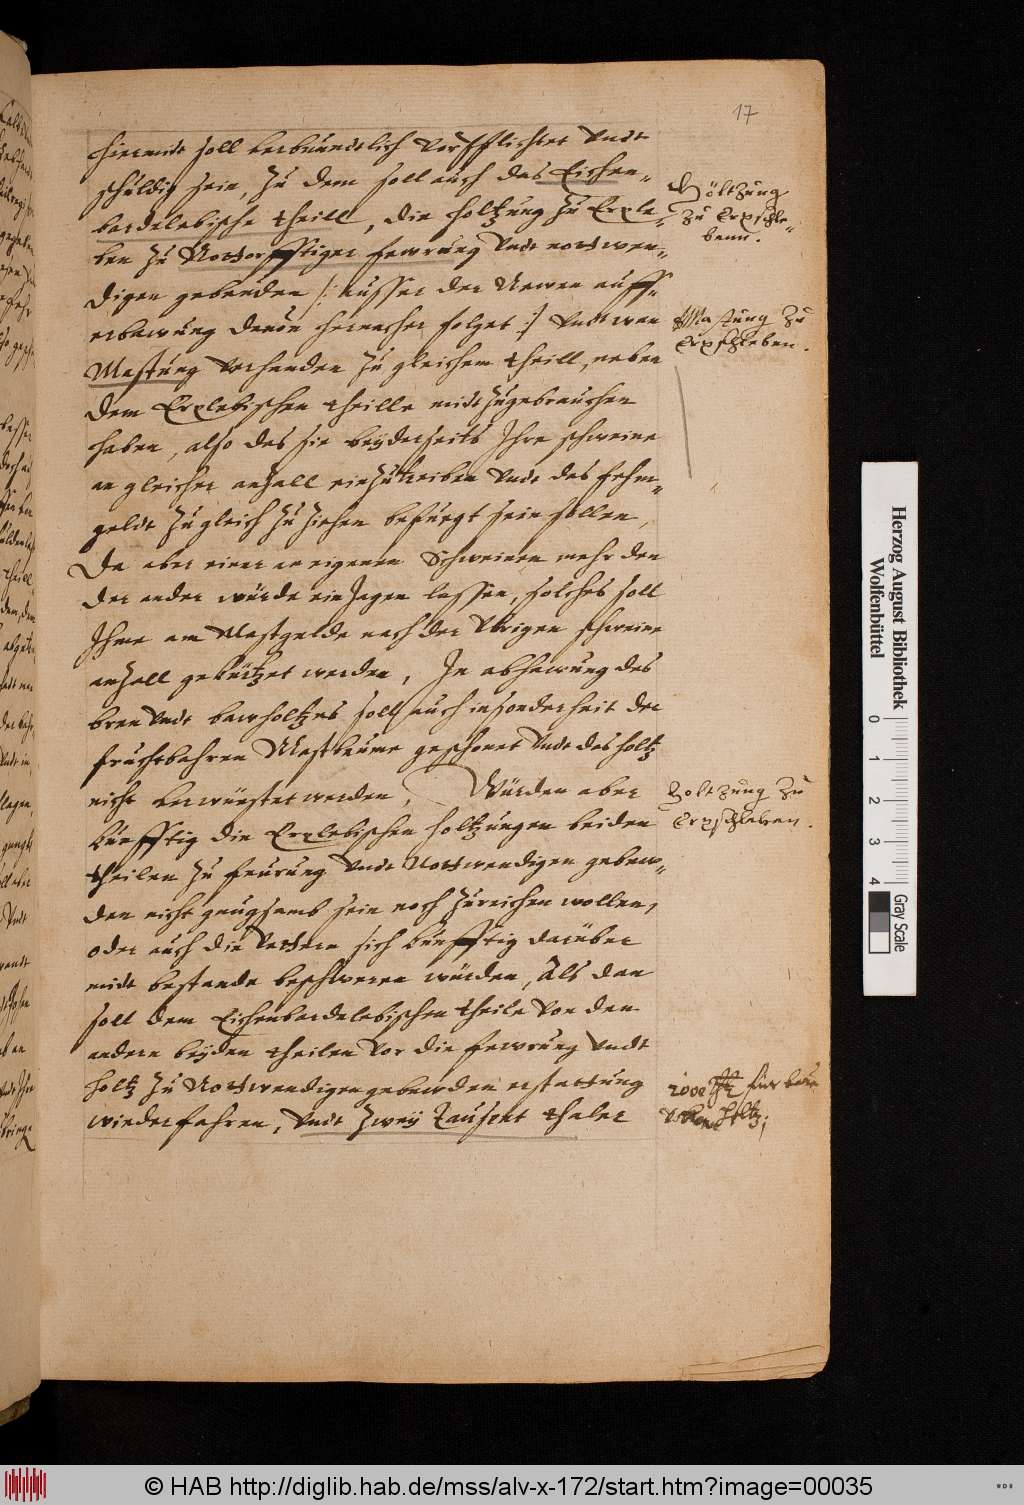 17
hiermit soll verbundtlich verpfflichtet undt
schuldig sein, Zu dem soll auch das Eichen-
bardelebische theill, die holtzung zu Erxle-
ben zu Nottorfftiger fewrung undt notwen-
digen gebeuden /: ausser der Newen auff-
erbawung davon hernacher folget :/ undt wan
Mastung vorhanden zu gleichem theill, neben
dem Erxlebischen theille mit zugebrauchen
haben, also das sie beyderseits Ihre schweine
an gleicher anzall einzutreiben undt das fehm-
geldt zugleich zu ziehen befuegt sein sollen,
Da aber einer an eigenen Schweinen mehr den
der ander würde einjagen lassen, solches soll
Ihme am Mastgelde nach der übrigen schweine
anzall gekürtzet werden, In abhawung des
bren undt bawholtzes soll auch insonderheit der
fruchtbahren Mastbeume geschonet undt das holtz
nicht verwüestet werden, Würden aber
künfftig die Erxlebischen holtzungen beiden
theilen zu feurung undt Nottwendigen gebew-
den nicht gnugsamb sein noch zureichen wollen,
oder auch die Vettern sich künfftig darüber
mit bestande beschweren würden, Als dan
soll dem Eichenbardelebischen theile von den
andern beyden theilen vor die fewrung undt
holtz zu Nottwendigen gebewden erstattung
wiederfahren, undt zwey tausent thaler
Höltzung
zu Erpschle-
benn.
Mastung zu
Erpschleben.
Holtzung zu
Erpschleben.
2000 für bau
holtz;
Herzog August Bibliothek
Wolfenbüttel
0 1 2 3 4
Gray Scale
© HAB http://diglib.hab.de/mss/alv-x-172/start.htm?image=00035